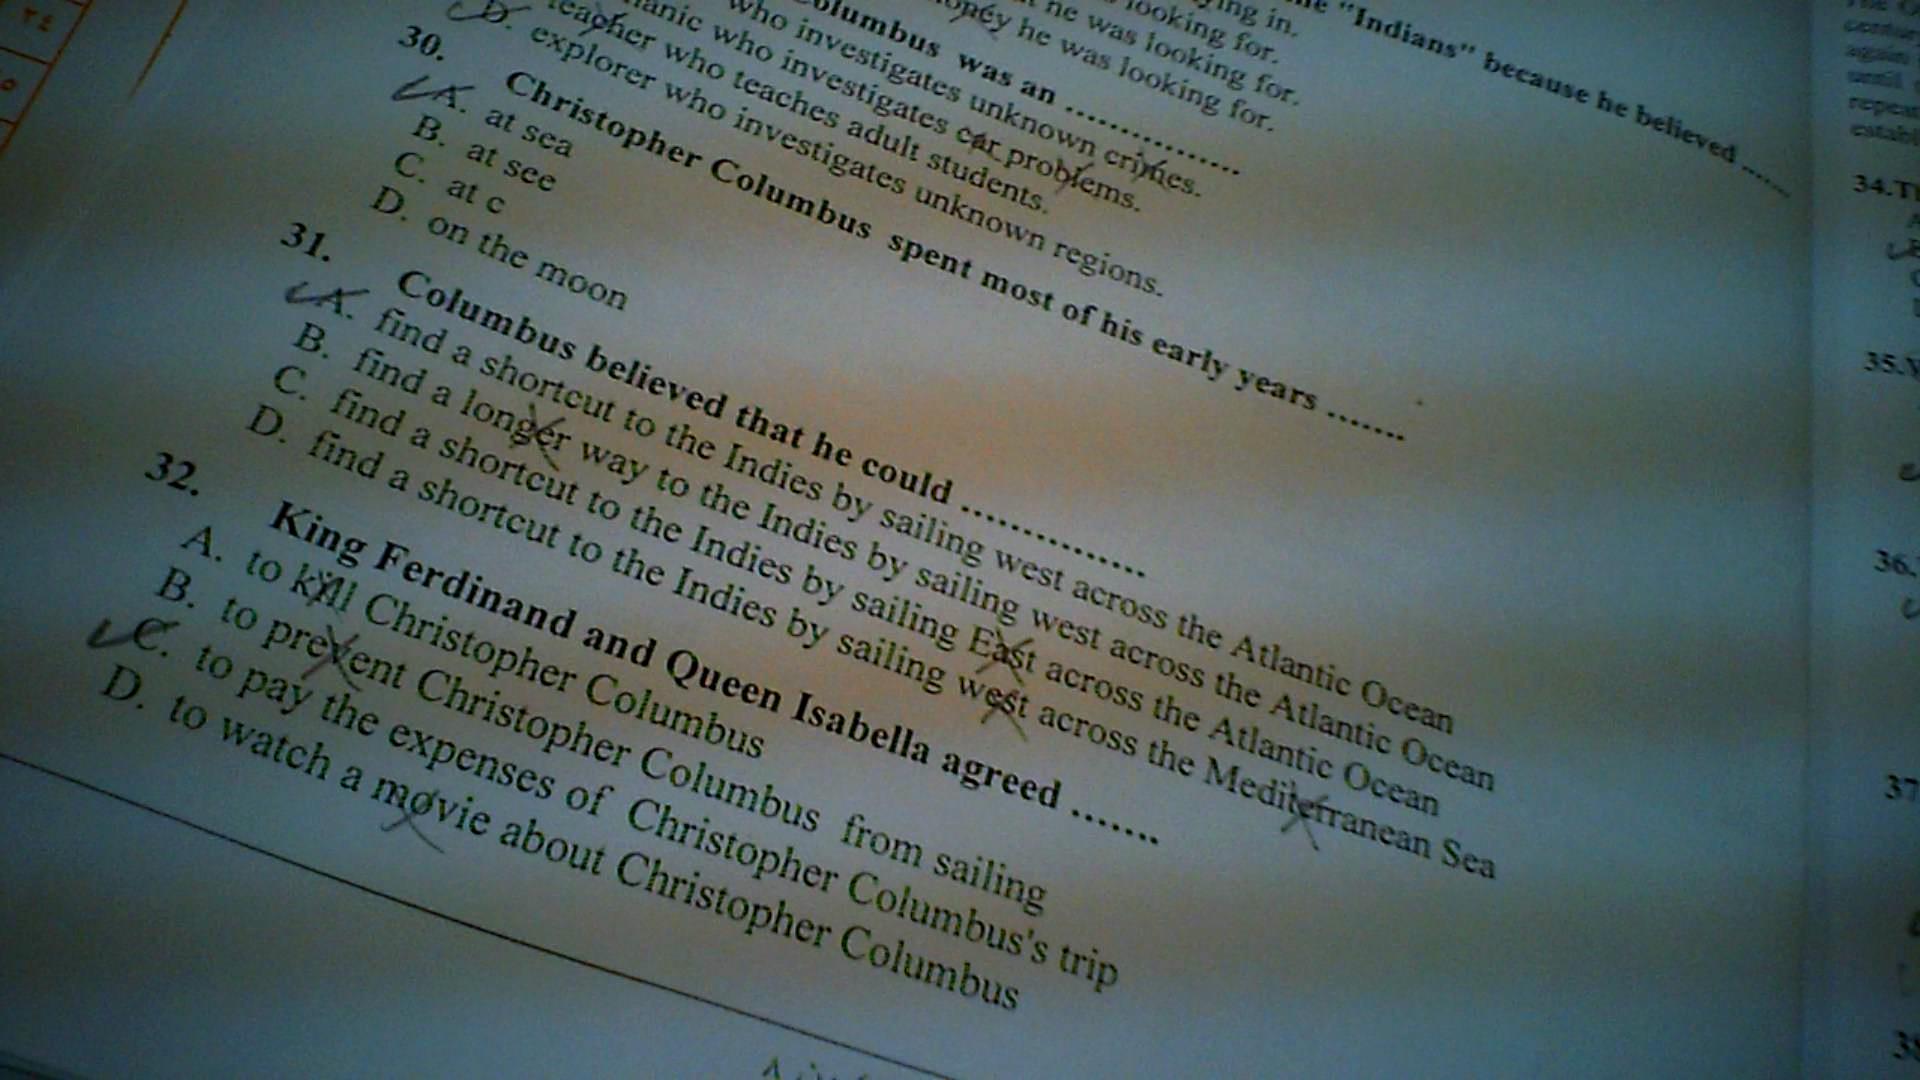 "Indians" because he believed ......
ying in.
looking for.
he was looking for.
he was looking for.
Columbus was an ................
who investigates unknown crimes.
who investigates car problems.
teacher who teaches adult students.
D. explorer who investigates unknown regions.
30. Christopher Columbus spent most of his early years .......
A. at sea
B. at see
C. at c
D. on the moon
31. Columbus believed that he could ................
A. find a shortcut to the Indies by sailing west across the Atlantic Ocean
B. find a longer way to the Indies by sailing west across the Atlantic Ocean
C. find a shortcut to the Indies by sailing East across the Atlantic Ocean
D. find a shortcut to the Indies by sailing west across the Mediterranean Sea
32. King Ferdinand and Queen Isabella agreed .......
A. to kill Christopher Columbus
B. to prevent Christopher Columbus from sailing
C. to pay the expenses of Christopher Columbus's trip
D. to watch a movie about Christopher Columbus
٣٤
again
until
34.
35.
36.
37